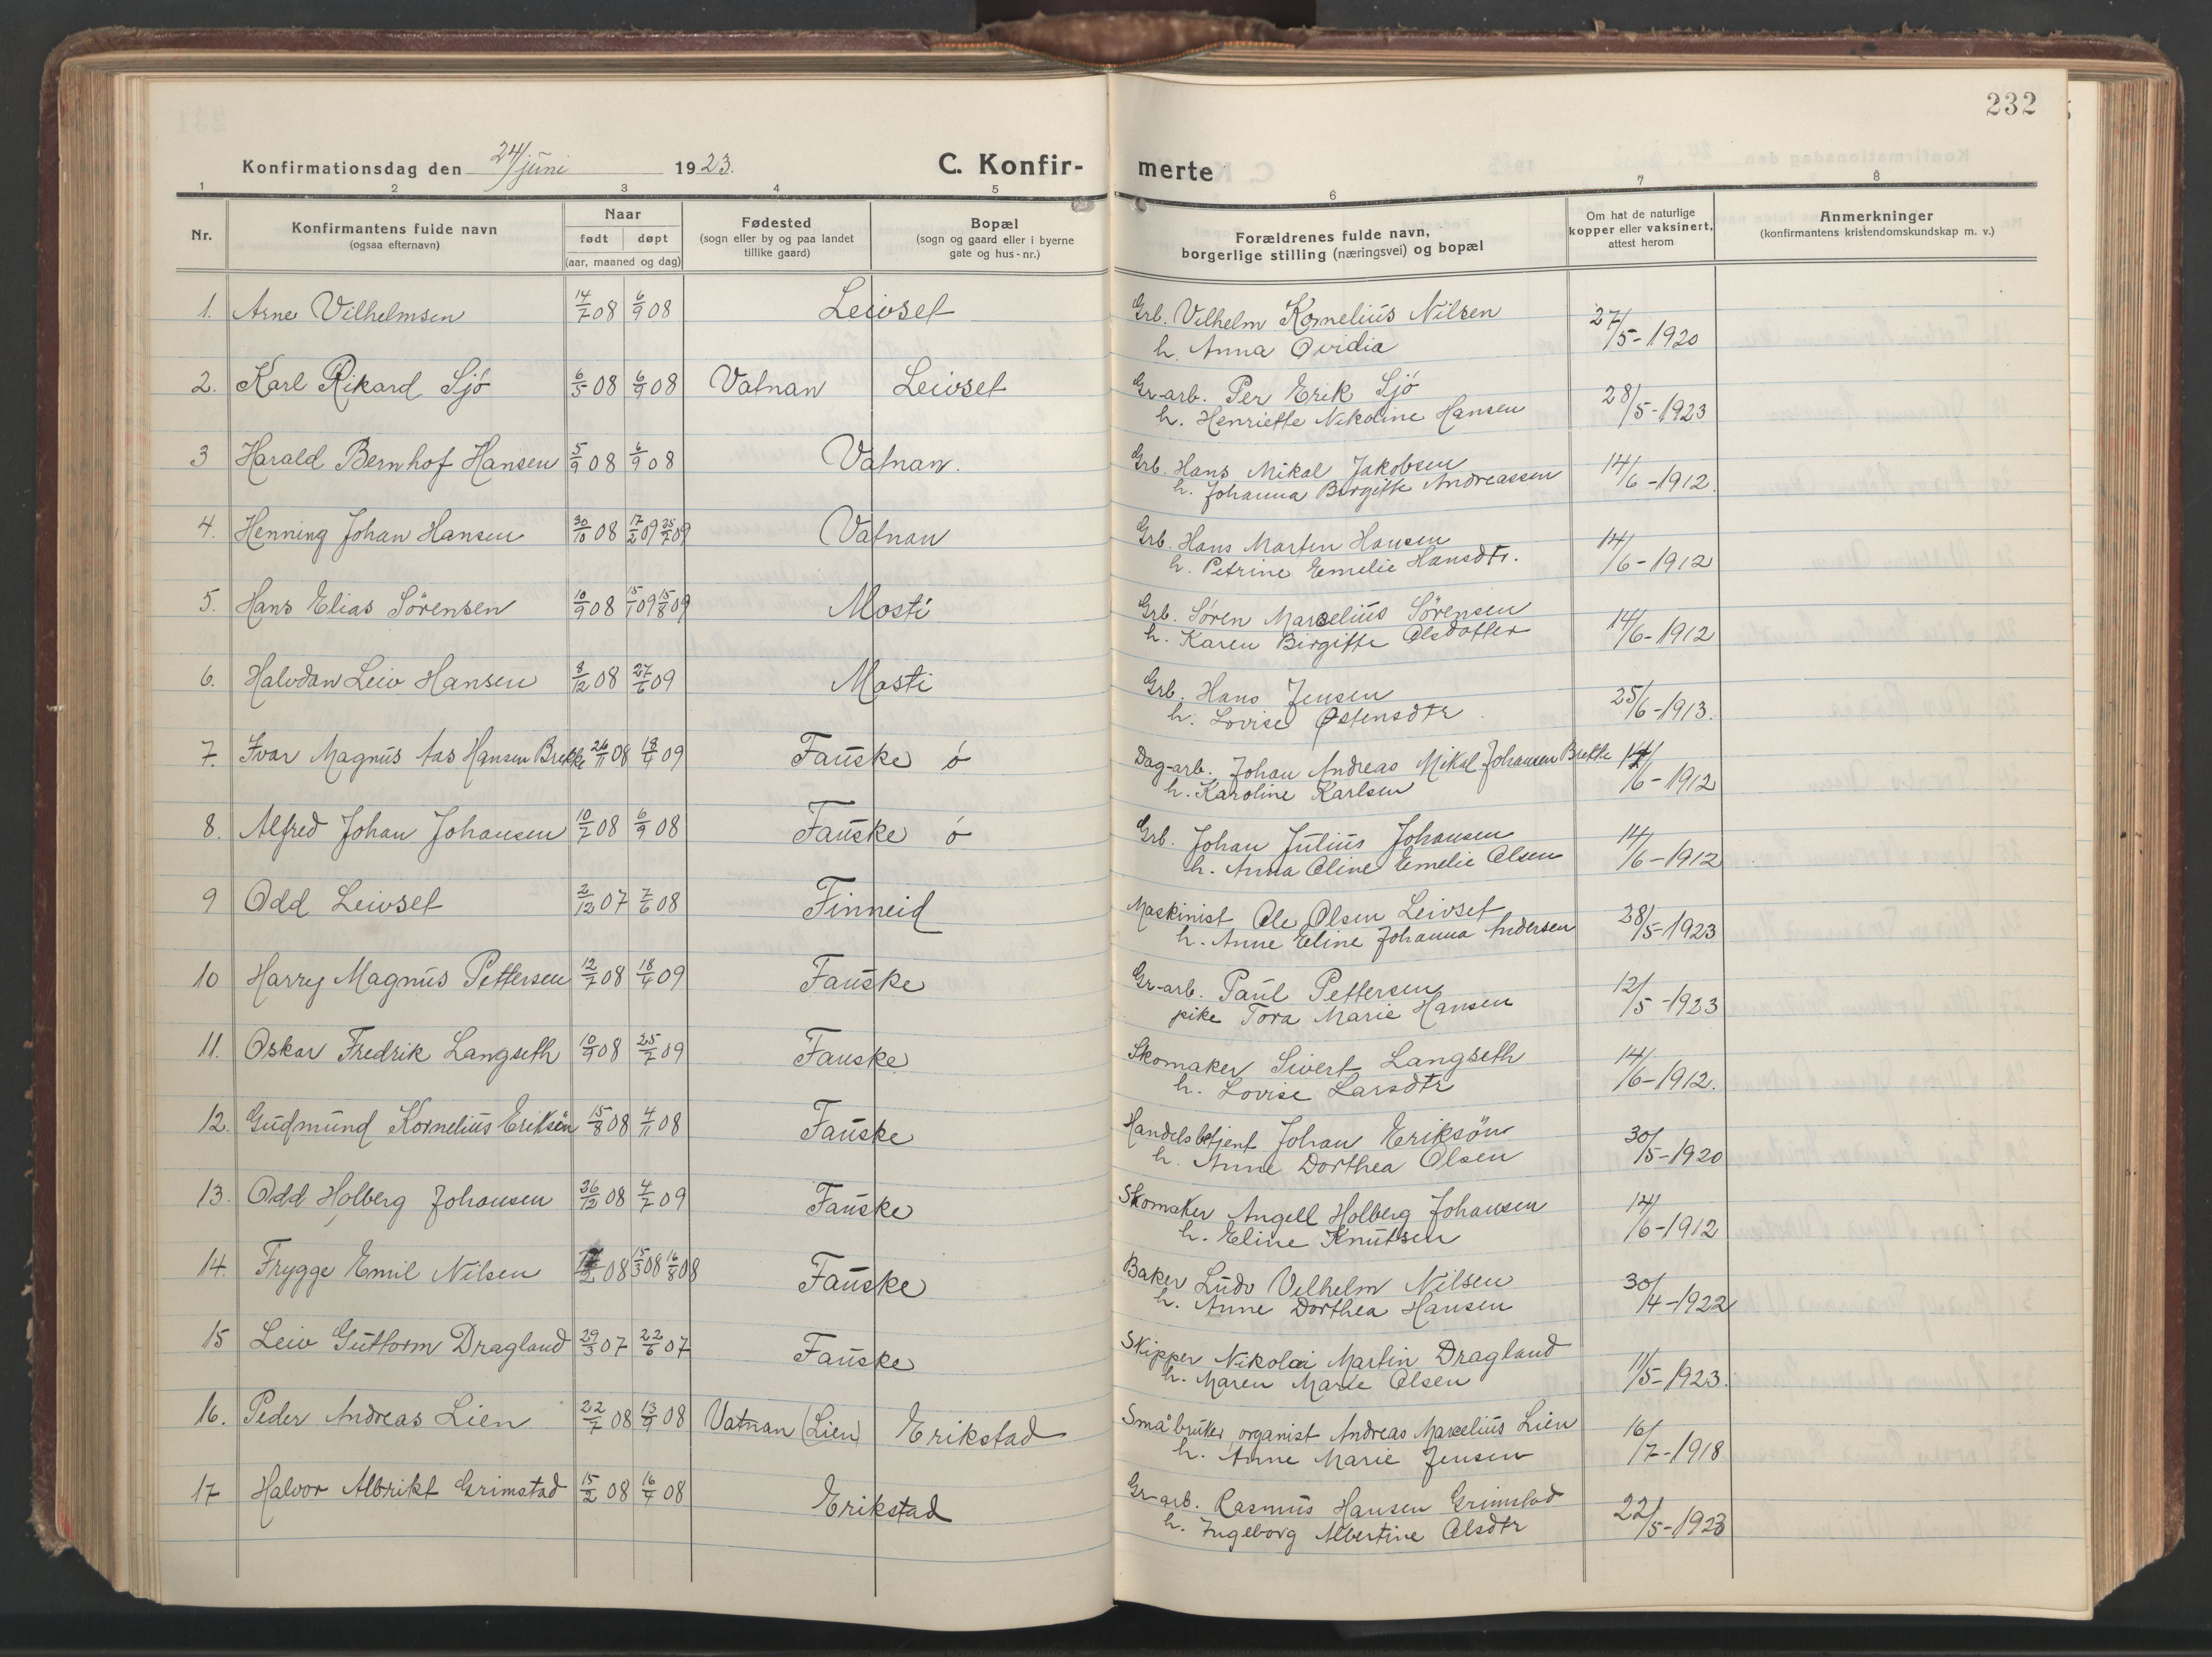 232
Konfirmationsdag den 24/juni 1923. C. Konfir- merte
1 2 3 4 5 6 7 8
Nr. | Konfirmantens fulde navn (ogsaa efternavn) | Naar født døpt (aar, maaned og dag) | Fødested (sogn eller by og paa landet tillike gaard) | Bopæl (sogn og gaard eller i byerne gate og hus-nr.) | Forældrenes fulde navn, borgerlige stilling (næringsvei) og bopæl | Om hat de naturlige kopper eller vaksinert, attest herom | Anmerkninger (konfirmantens kristendomskundskap m. v.)
1. Arne Vilhelmsen 14/7 08 6/9 08 Leivset Grb. Vilhelm Kornelius Nilsen 27/5-1920
h. Anna Ovidia
2. Karl Rikard Sjö 6/5 08 6/9 08 Vatnan Leivset Gr-arb. Per Erik Sjö 28/5-1923
h. Henriette Nikoline Hansen
3 Harald Bernhof Hansen 5/9 08 6/9 08 Vatnan. Grb. Hans Mikal Jakobsen 14/6-1912.
h. Johanna Birgitte Andreassen
4. Henning Johan Hansen 30/10 08 17/2 09 25/7 09 Vatnan Grb. Hans Martin Hansen 14/6-1912
h. Petrine Emelie Hansdtr.
5. Hans Elias Sörensen 10/9 08 15/1 09 15/8 09 Mosti Grb. Sören Marselius Sörensen 14/6-1912
h. Karen Birgitte Olsdatter
6. Halvdan Leiv Hansen 8/12 08 27/6 09 Mosti Grb. Hans Jensen 25/6-1913.
h. Lovise Østensdtr
7. Ivar Magnus Aas Hansen Brekke 26/11 08 18/4 09 Fauske ö Dag-arb. Johan Andreas Mikal Johansen Brekke 14/6-1912
h. Karoline Karlsen
8. Alfred Johan Johansen 10/7 08 6/9 08 Fauske ö Grb. Johan Julius Johansen 14/6-1912
h. Anna Oline Emelie Olsen
9 Odd Leivset 2/12 07 7/6 08 Finneid Maskinist Ole Olsen Leivset 28/5-1923
h. Anne Eline Johanna Andersen
10 Harry Magnus Pettersen 12/7 08 18/4 09 Fauske Gr-arb. Paul Pettersen 12/5-1923
pike Tora Marie Hansen
11. Oskar Fredrik Langseth 10/9 08 25/7 09 Fauske Skomaker Sivert Langseth 14/6-1912.
h. Lovise Larsdtr
12. Gudmund Kornelius Eriksön 15/8 08 4/11 08 Fauske Handelsbetjent Johan Eriksön 30/5-1920
h. Anne Dorthea Olsen
13. Odd Holberg Johansen 26/12 08 4/7 09 Fauske Skomaker Angell Holberg Johansen 14/6-1912
h. Eline Knutsen
14. Frygge Emil Nilsen 08 15/3 08 16/8 08 Fauske Baker Ludv Vilhelm Nilsen 30/4-1922
h. Anne Dorthea Hansen
15 Leiv Guttorm Dragland 29/3 07 22/6 07 Fauske Skipper Nikolai Martin Dragland 11/5-1923.
h. Maren Marie Olsen
16. Peder Andreas Lien 22/7 08 13/9 08 Vatnan (Lien) Erikstad Småbruker, organist Andreas Marcelius Lien 16/7-1918
h. Anne Marie Jensen
17 Halvor Albrikt Grimstad 15/2 08 16/4 08 Erikstad Gr-arb. Rasmus Hansen Grimstad 22/5-1923
h. Ingeborg Albertine Olsdtr